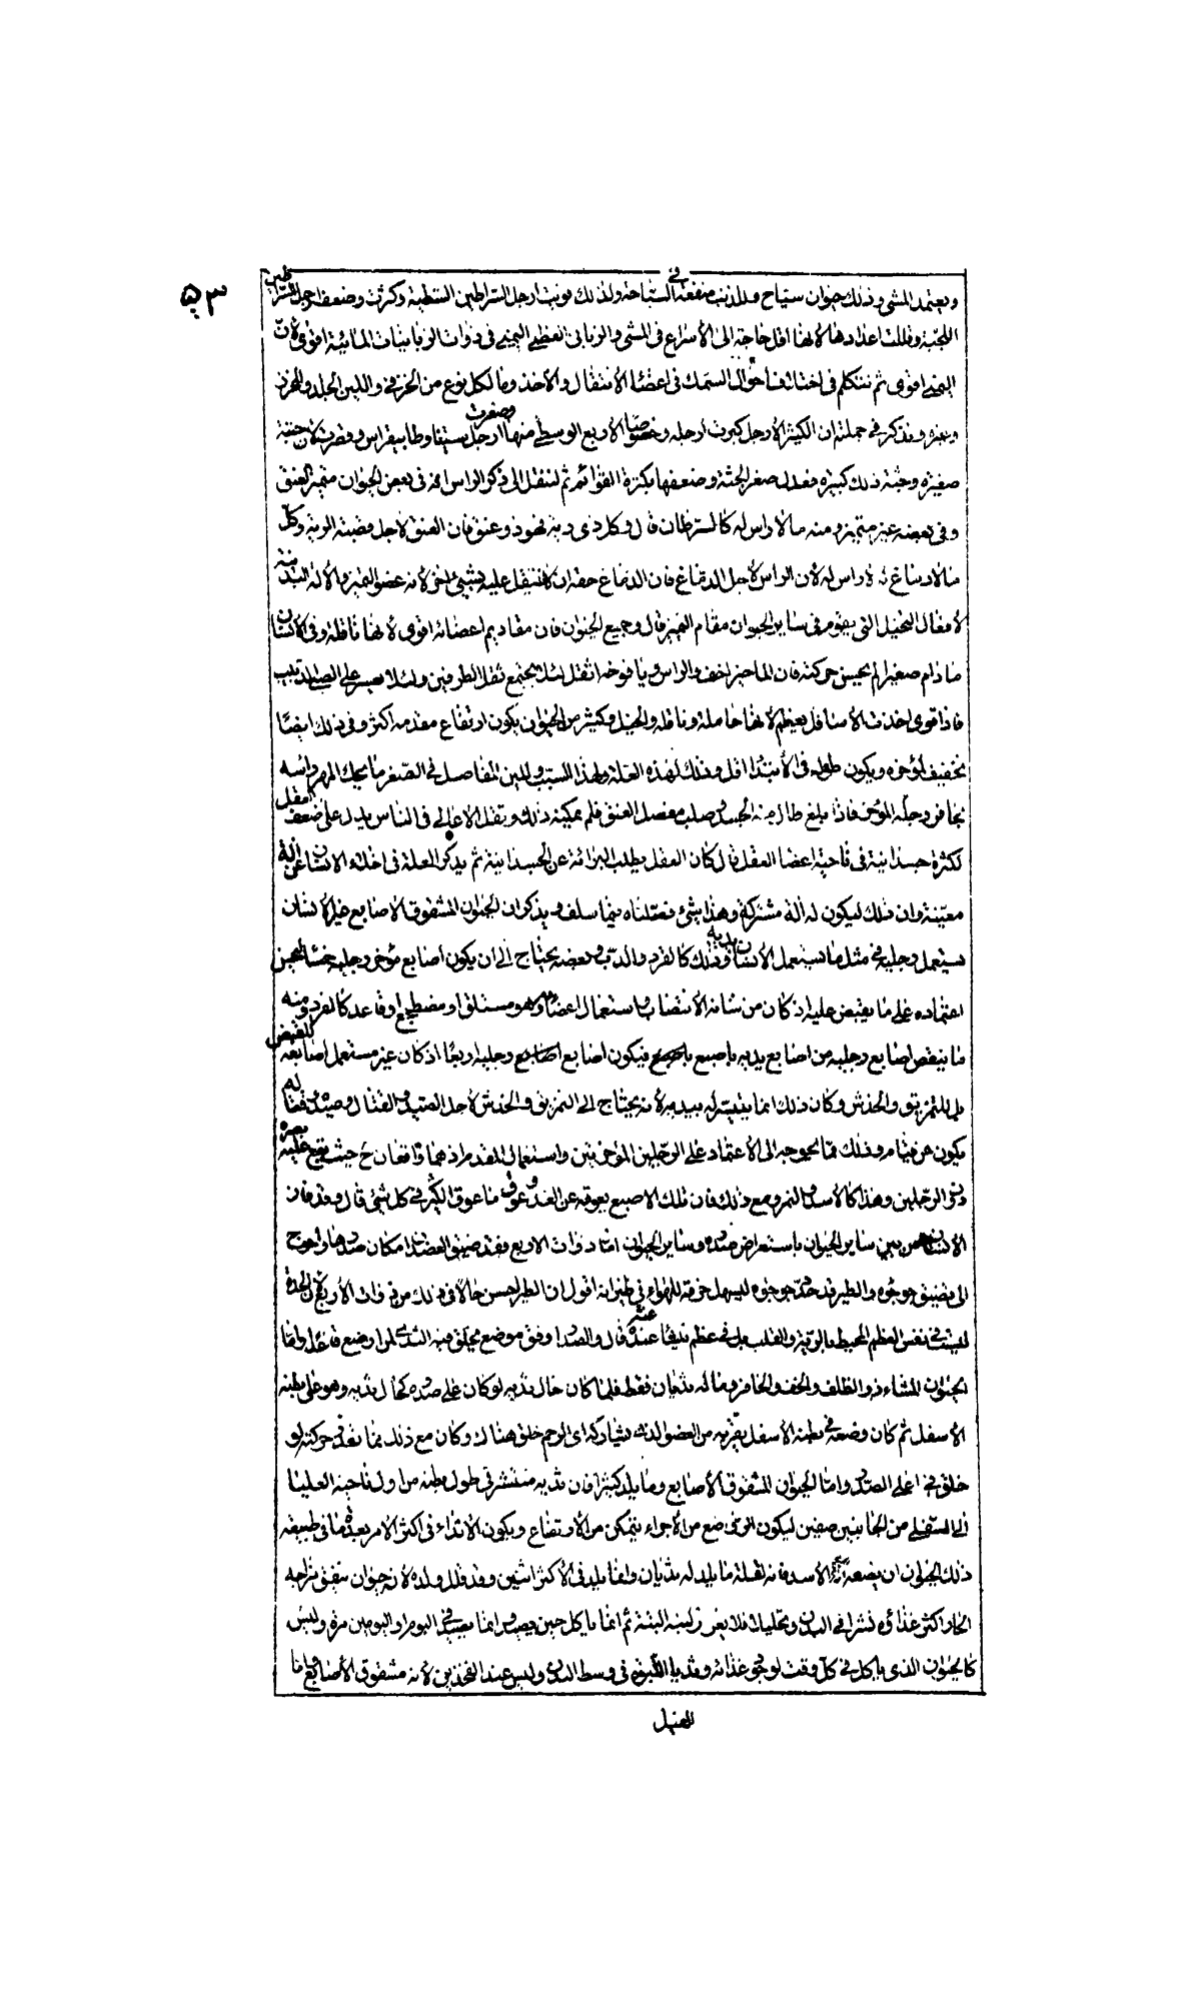 ۵۳
ويعتمد المشى وذلك حيوان سبّاح وللذنب منفعة فى السباحة ولذلك قويت ارجل السراطين الشطية وكثرت وضعف ارجل السراطين
اللجية وقللت اعدادها لانها اقل حاجة الى الاسراع فى المشى والزبانى العظمى اليمنى فى ذوات الزبانيات المائية اقوى لان
اليمنى اقوى ثم نتكلم فى اختلاف احوال السمك فى اعضاء الانتقال والاخذ وما لكل نوع من الخزفى واللين الجلد والمحزز
وغيره وقد ذكر فى جملته ان الكثير الارجل كبرت ارجله وخصوصا الاربع الوسطى منها وصغرت ارجل سيبيا وطابيقراس وقصرت لان جثته
صغيرة وجثة ذلك كبيرة فعدل صغر الجثة وضعفها بكثرة القوائم ثم ننتقل الى ذكر الراس انه فى بعض الحيوان متميز العنق
وفى بعضه غير متميز ومنه ما لا راس له كالسرطان قال وكل ذى رية فهو ذو عنق فان العنق لاجل قصبة الرية وكل
ما لا دماغ له لا راس له لان الراس لاجل الدماغ فان الدماغ حقه ان لا يثقل عليه بشئ اخر لانه عضو التميز والآلة البدنية
لافعال التخيل التى يقوم فى ساير الحيوان مقام التميز قال وجميع الحيوان فان مقاديم اعضائه اقوى لانها ناقلة وفى الانسان
ما دام صغيرا لم يحسن حركته فان المآخير اخف والراس ويافوخه اثقل لئلا يجتمع ثقل الطرفين ولئلا يعسر على الصبى الدبيب
فاذا قوى اخذت الاسافل يعظم لانها حاملة وناقلة والخيل وكثير من الحيوان يكون ارتفاع مقدمه اكثر وفى ذلك ايضا
تخفيف لمؤخره ويكون طوله فى الابتداء اقل وذلك لهذه العلة ولهذا السبب وللين المفاصل فى الصغر ما يحك المهر راسه
بحافر رجله المؤخر فاذا بلغ طال منه الجسد وصلب مفصل العنق فلم يمكنه ذلك وثقل الاعالى فى الناس يدل على ضعف العقل
لكثرة جسدانية فى ناحية اعضا العقل قال كان العقل يطلب البرائة عن الجسدانية ثم يذكر العلة فى اخلاء الانسان عن آلة
معينة وان ذلك ليكون له آلة مشتركة وهذا شئ فصلناه فيما سلف ويذكر ان الحيوان المشقوق الاصابع غير الانسان
يستعمل رجليه فى مثل ما يستعمل الانسان يديه وذلك كالقرد والدب وبعضه يحتاج الى ان يكون اصابع مؤخر رجليه خمسا لحسن
اعتماده على ما يقبض عليه اذ كان من شانه الانتصاب واستعمال اعضائه وهو مستلق او مضطجع او قاعد كالقرد ومنه
ما ينقص اصابع رجليه من اصابع يديه باصبع فيكون اصابع رجليه اربعا اذ كان غير مستعمل اصابعه للقبض
بل للتمزيق والخدش وكان ذلك انما يتيسر له بيديه لانه يحتاج الى التمزيق والخدش لاجل الصيد والقتال وصيده وقتاله
يكون عن قيام وذلك مما يحوجه الى الاعتماد على الرجلين المؤخرتين واستعمال المقدم اذ هما واقعان ح حيث يقع عليه بصره
دون الرجلين وهذا كالاسد والنمر ومع ذلك فان تلك الاصبع يعوقه عن العدو عوقا ما عوق الكثير فى كل شئ قال وقد فارق
الانسان من بين ساير الحيوان باستعراض صدره وساير الحيوان اما ذوات الاربع فقد ضيق العضدان مكان صدرها واحوج
الى تضييق جوجؤه والطير قد حدّد جوجؤه ليسهل خرقه للهواء فى طيرانه اقول ان الطير احسن حالا فى ذلك من ذوات الاربع لان الحدة
ليست فى نفس العظم المحيط بالرية والقلب بل فى عظم نيفا عنه عشر قال والصدر اوفق موضع يخلق فيه الثدى لمن ارضع قاعدا واما
الحيوان المشاء ذو الظلف والخف والحافر وما له ثديان فقط فلما كان حال ثديه لو كان على صدره كحال ثديه وهو على بطنه
الاسفل ثم كان وضعه فى بطنه الاسفل يقربه من العضو الذى يشاركه اى الرحم خلق هناك وكان مع ذلك مما يعذر فى حركته لو
خلق فى اعلى الصدر واما الحيوان المشقوق الاصابع وما يلد كثيرا فان ثديه منتشر فى طول بطنه من اول ناحيته العليا
الى السفلى من الجانبين صفين ليكون الرضيع من الاجراء يتمكن من الارتفاع ويكون الاثداء فى اكثر الامر بعدد ما فى طبيعة
ذلك الحيوان ان يضعه الا الاسد فانه لقلة ما يلد له ثديان وانما يلد فى الاكثر اثنين وقد قلل ولده لانه حيوان ينفق مزاجه
الحار اكثر غذاؤه نشرا فى البدن وتحليلا فلا يغزر لبنه البتة ثم انما ياكل حين يصيد وانما يصيد فى اليوم او اليومين مرة وليس
كالحيوان الذى ياكل فى كل وقت لوجود غذائه وثديا اللبوة فى وسط البدن وليس عند الفخذين لانه مشقوق الاصابع واما
الفيل